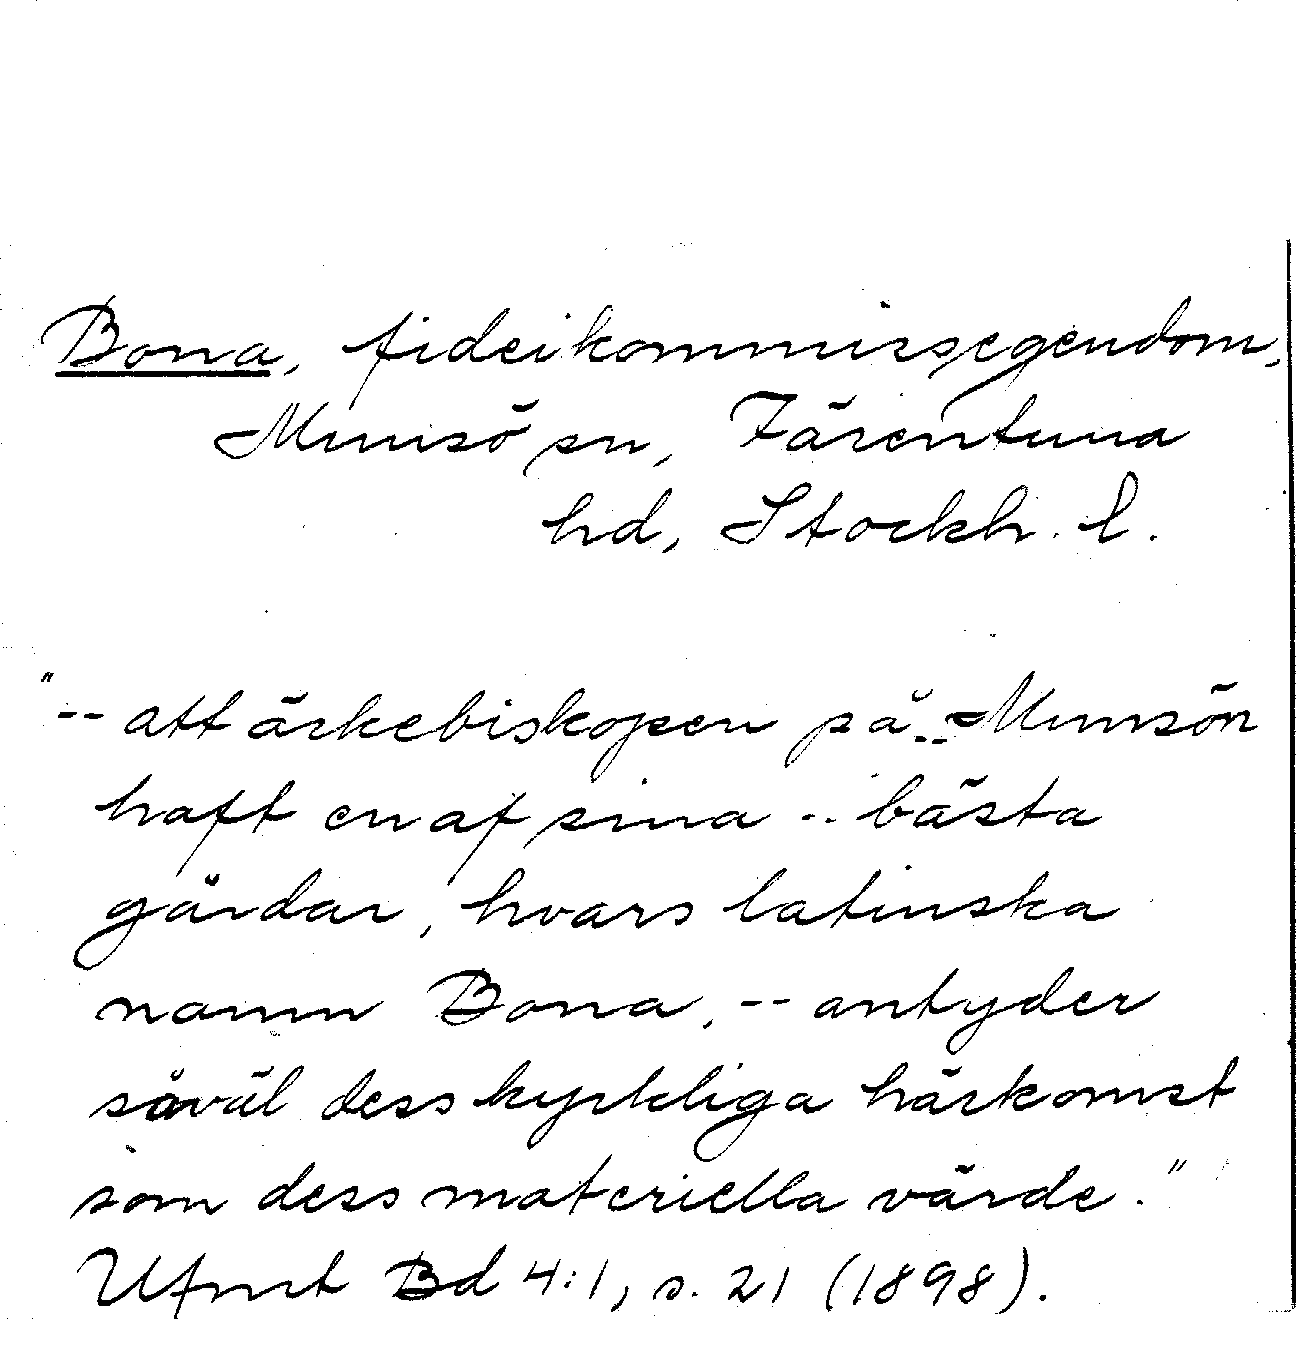 Bona, fideikommissegendom,
Munsö sn, Färentuna
hd, Stockh. l.
"-- att ärkebiskopen på -- Munsön
haft en af sina -- bästa
gårdar, hvars latinska
namn Bona, -- antyder
såväl dess kyrkliga härkomst
som dess materiella värde."
Ufmt Bd 4:1, s. 21 (1898).